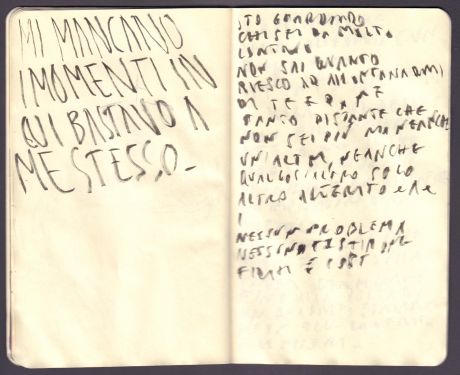 MI MANCANO
I MOMENTI IN
CUI BASTAVO A
ME STESSO_
STO GUARDANDO
CHI SEI DA MOLTO
LONTANO
NON SAI QUANTO
RIESCO AD ALLONTANARMI
DA TE E DA ME
TANTO DISTANTE CHE
NON SEI PIÙ MA NEANCHE
UN'ALTRA, NEANCHE
QUALCOS'ALTRO SOLO
ALTRO
NESSUN PROBLEMA
NESSUNA
È